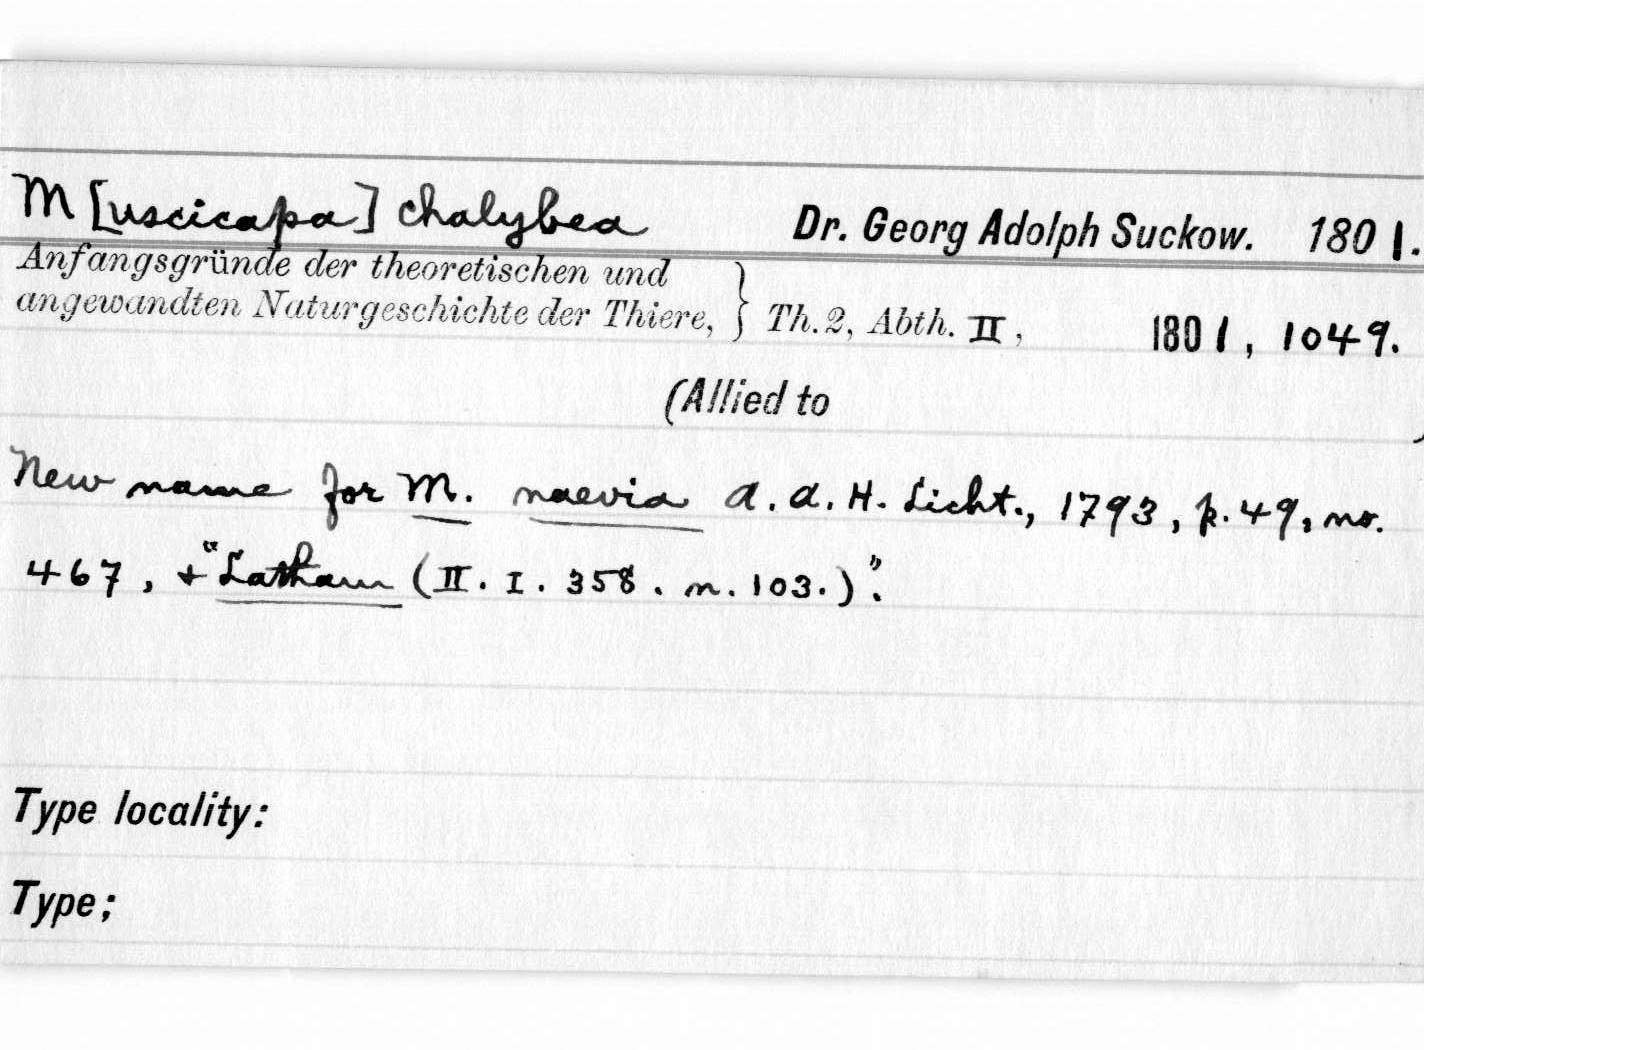 M[uscicapa] chalybea Dr. Georg Adolph Suckow. 1801.
Anfangsgründe der theoretischen und
angewandten Naturgeschichte der Thiere, } Th.2, Abth. II, 1801, 1049.
(Allied to )
New name for M. naevia A. A. H. Licht., 1793, p. 49, no.
467, + "Latham (II. I. 358. n. 103.)".
Type locality:
Type;